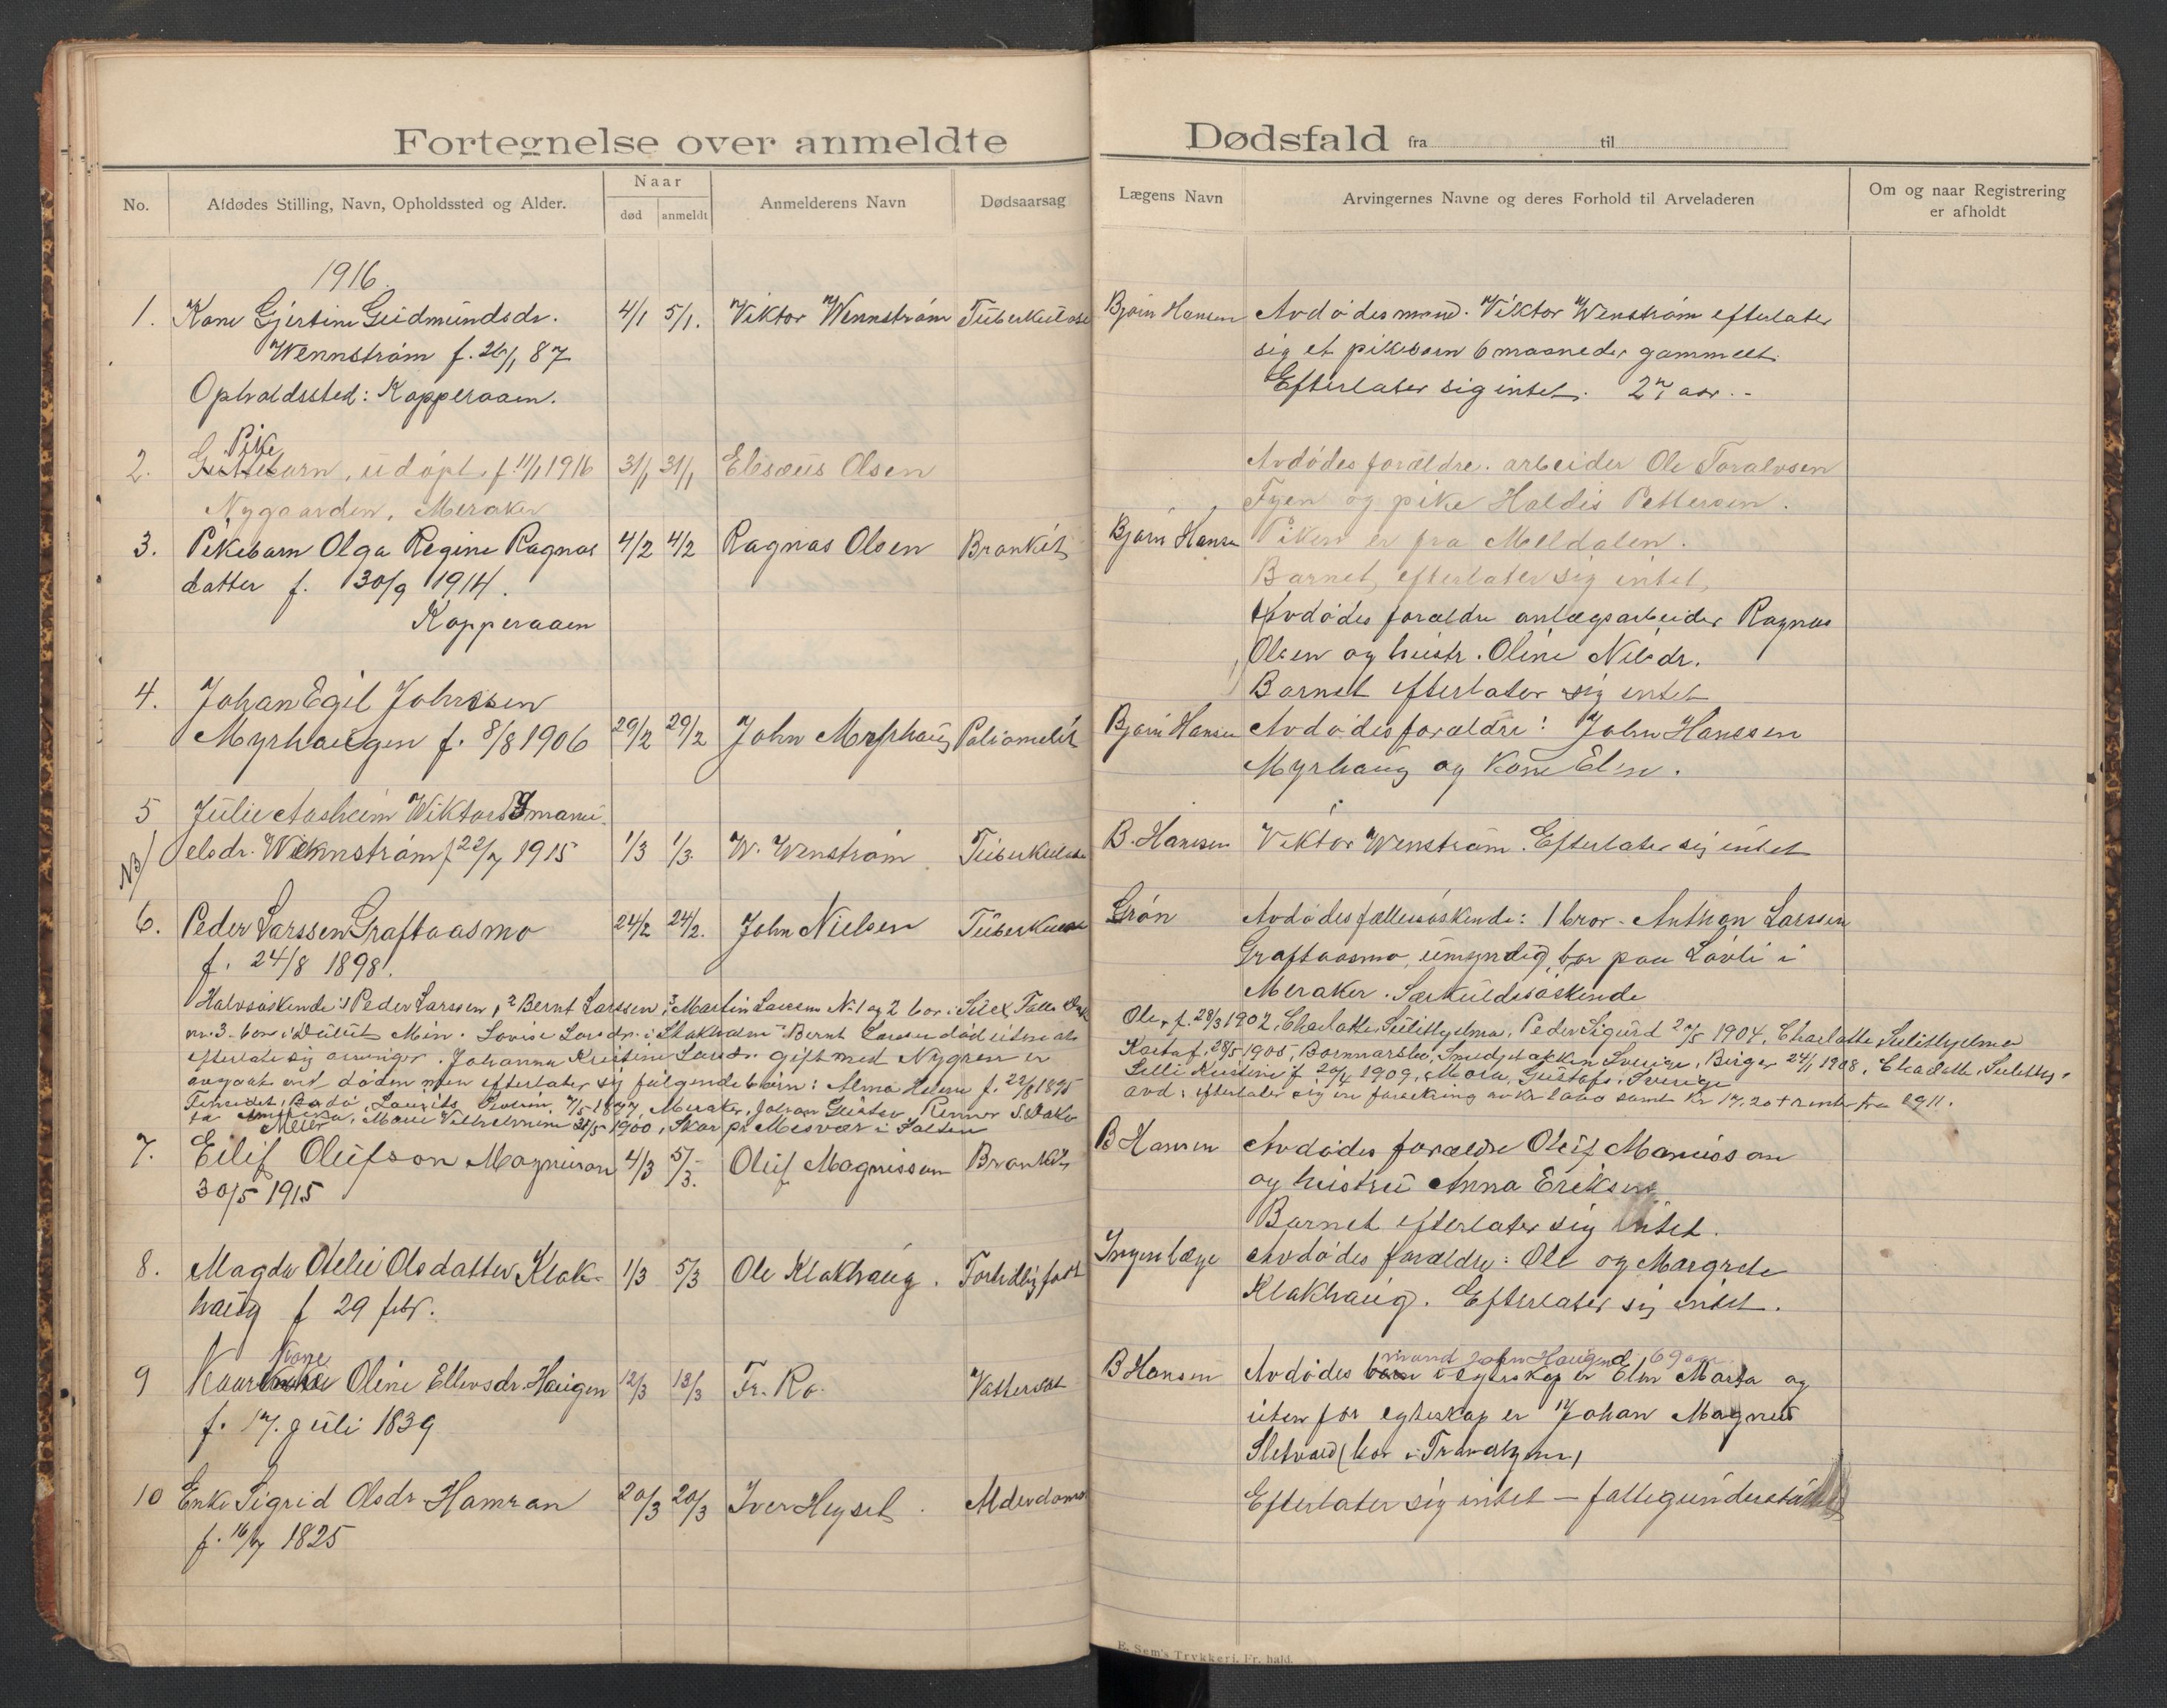 Fortegnelse over anmeldte Dødsfald fra til
No.
Afdødes Stilling, Navn, Opholdssted og Alder.
Naar
død
anmeldt
Anmelderens Navn
Dødsaarsag
Lægens Navn
Arvingernes Navne og deres Forhold til Arveladeren
Om og naar Registrering
er afholdt
1916.
1. Kone Gjertine Gudmundsdr. 4/1 5/1. Viktor Wennstrøm Tuberkulose
Wennstrøm f. 26/1 87
Opholdssted: Kopperaaen.
2. Pike
Guttebarn, udøpt, f. 11/1 1916 31/1 31/1 Elisæus Olsen
Nygaarden, Meraker
3. Pikebarn Olga Regine Ragnas 4/2 4/2 Ragnas Olsen Bronkit
datter f. 30/9 1914.
Kopperaaen
4. Johan Egil Johnsen
Myrhaugen f. 8/8 1906 29/2 29/2 John Myrhaug Poliomelit
5 Julie Aasheim Wiktors Emanu-
elsdr. Wennstrøm f 22/7 1915 1/3 1/3. W. Wenstrøm Tuberkulose
N3/
6. Peder Larssen Graftaasmo 24/2 24/2. John Nielsen Tuberkulose
f. 24/8 1898.
Halvsøskende: 1 Peder Larssen, 2 Bernt Larssen, 3 Martin Larssen No 1 og 2 bor i
nr. 3. bor i Duluth Min. Lovise Larsdr. i Stokholm Bernt Larssen død uten at
efterlate sig arvinger. Johanna Kristine Larsdr. gift med Nygren er
avgaat ved døden men efterlater sig følgende børn: Alma Helene f. 22/8 1895
Bodø, Laurits 7/5 1897, Meraker, Johan Gustav, Renner S. Dakota
Amerika, Marie Vilhelmine 31/5 1900, Skar pr Misvær i Salten
7. Eilif Olufson Magnuson 4/3 5/3. Oluf Magnusson Bronkit
30/5 1915
8. Magda Otelie Olsdatter Klak- 1/3 5/3 Ole Klakhaug. Fortidlig født
haug f 29 febr.
9 Kone
Oline Ellevsdr. Haugen 12/3 13/3 Fr. Ro. Vattersot
f. 17. juli 1839
10 Enke Sigrid Olsdr Hamran 20/3 20/3 Iver Heyset. Alderdoms
f. 16/7 1825
Bjørn Hansen Avdødes mand. Viktor Wenstrøm efterlater
sig et pikebarn 6 maaneder gammelt.
Efterlater sig intet. 27 aar.-
Avdødes forældre. arbeider Ole Toralvsen
Fyen og pike Haldis Pettersen.
Bjørn Hansen Piken er fra Meldalen.
Barnet, efterlater sig intet,
Avdødes forældre anlægsarbeider Ragnas
Olsen og hustr. Oline Nilsdr.
Barnet efterlater sig intet
Bjørn Hansen Avdødes forældre: John Hanssen
Myrhaug og Kone Elen.
B. Hanssen Viktor Wenstrøm. Efterlater sig intet
Grøn Avdødes fællessøskende: 1 bror - Anthon Larssen
Graftaasmo, umyndig, bor paa Løvli i
Meraker. Særkuldssøskende
Ole, f. 28/3 1902, Charlotta, Sulitelma, Peder Sigurd 20/5 1904, Charlotta Sulitelma
28/5 1905, Sverige, Birger 24/1 1908, Charlotta, Sulitelma
Kristine f 20/4 1909, Mora, Gustafs, Sverige
avd. efterlater sig en forsikring av kr 1000 samt kr 17.20 + renter fra 1911.
B Hansen Avdødes forældre Oluf Manusson
og hustru Anna Eriksen
Barnet efterlater sig intet.
Ingen læge Avdødes forældre: Ole og Margrete
Klakhaug. Efterlater sig intet.
mand John Haugen 69 aar
B Hansen Avdødes barn i egteskap er Elen Marta og
uten for egteskap er Johan Magnus
Sletvold (bor i Trondhjem)
Efterlater sig intet — fattigunderstøttet
E. Sem's Trykkeri, Fr. hald.